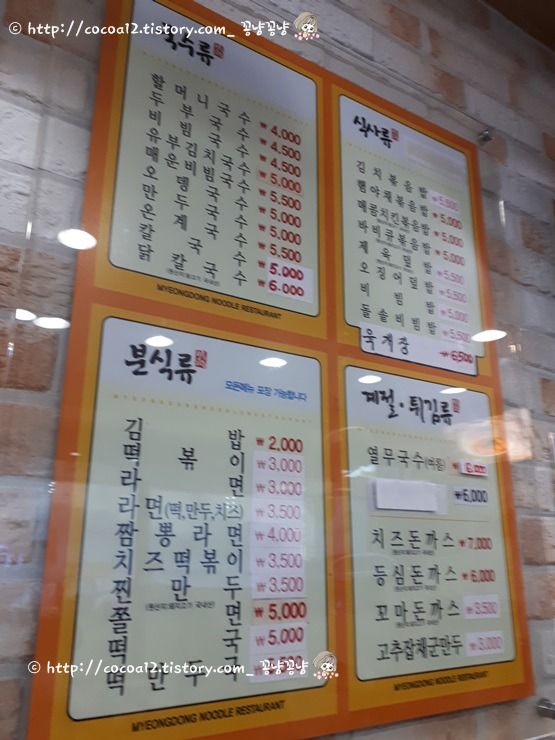 © http://cocoa12.tistory.com_ 꽁냥꽁냥
국수류
할머니국수 ₩4,000
두부국수 ₩4,500
비빔국수 ₩4,500
유부김치국수 ₩5,000
매운비빔국수 ₩5,500
오뎅국수 ₩5,000
만두국수 ₩5,000
온계국수 ₩5,500
칼국수 ₩5,000
닭칼국수 ₩6,000
MYEONGDONG NOODLE RESTAURANT
식사류
김치볶음밥 ₩5,000
햄야채볶음밥 ₩5,000
매콤치킨볶음밥 ₩5,500
바비큐볶음밥 ₩5,000
제육덮밥 ₩5,500
오징어덮밥 ₩5,500
비빔밥 ₩5,000
돌솥비빔밥 ₩5,500
육계장 ₩6,500
분식류
모든메뉴 포장 가능합니다
김밥 ₩2,000
떡볶이 ₩3,000
라면 ₩3,000
라면(떡,만두,치즈) ₩3,500
짬뽕라면 ₩4,000
치즈떡볶이 ₩3,500
찐만두 ₩3,500
쫄면 ₩5,000
떡국 ₩5,000
떡만두국
MYEONGDONG NOODLE RESTAURANT
계절·튀김류
열무국수(여름) ₩6,000
₩6,000
치즈돈까스 ₩7,000
등심돈까스 ₩6,000
꼬마돈까스 ₩3,500
고추잡채군만두 ₩3,000
MYEONGDONG NOODLE RESTAURANT
© http://cocoa12.tistory.com_ 꽁냥꽁냥